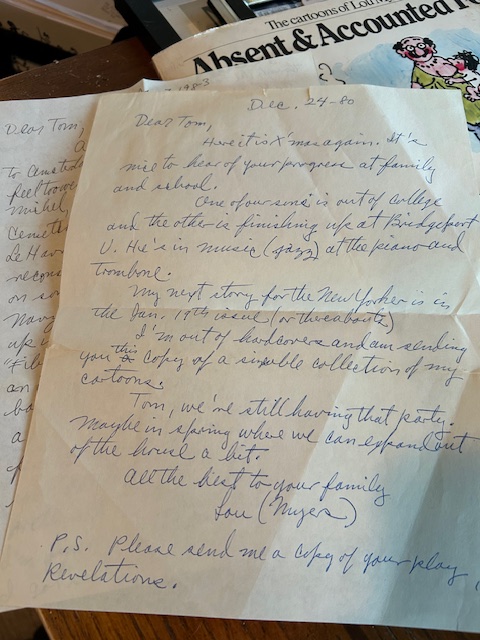 The cartoons of Lou
Absent & Accounted
1983
Dear Tom,
Dec. 24-80
Dear Tom,
Here it is X'mas again. It's
nice to hear of your progress at family
and school.
One of our sons is out of college
and the other is finishing up at Bridgeport
U. He's in music (jazz) at the piano and
trombone.
My next story for the New Yorker is in
the Jan. 19th issue (or thereabouts)
I'm out of hardcovers and am sending
you this copy of a sizable collection of my
cartoons.
Tom, we're still having that party.
Maybe in spring where we can expand out
of the house a bit.
All the best to your family
Lou (Myers)
P.S. Please send me a copy of your play,
Revelations.